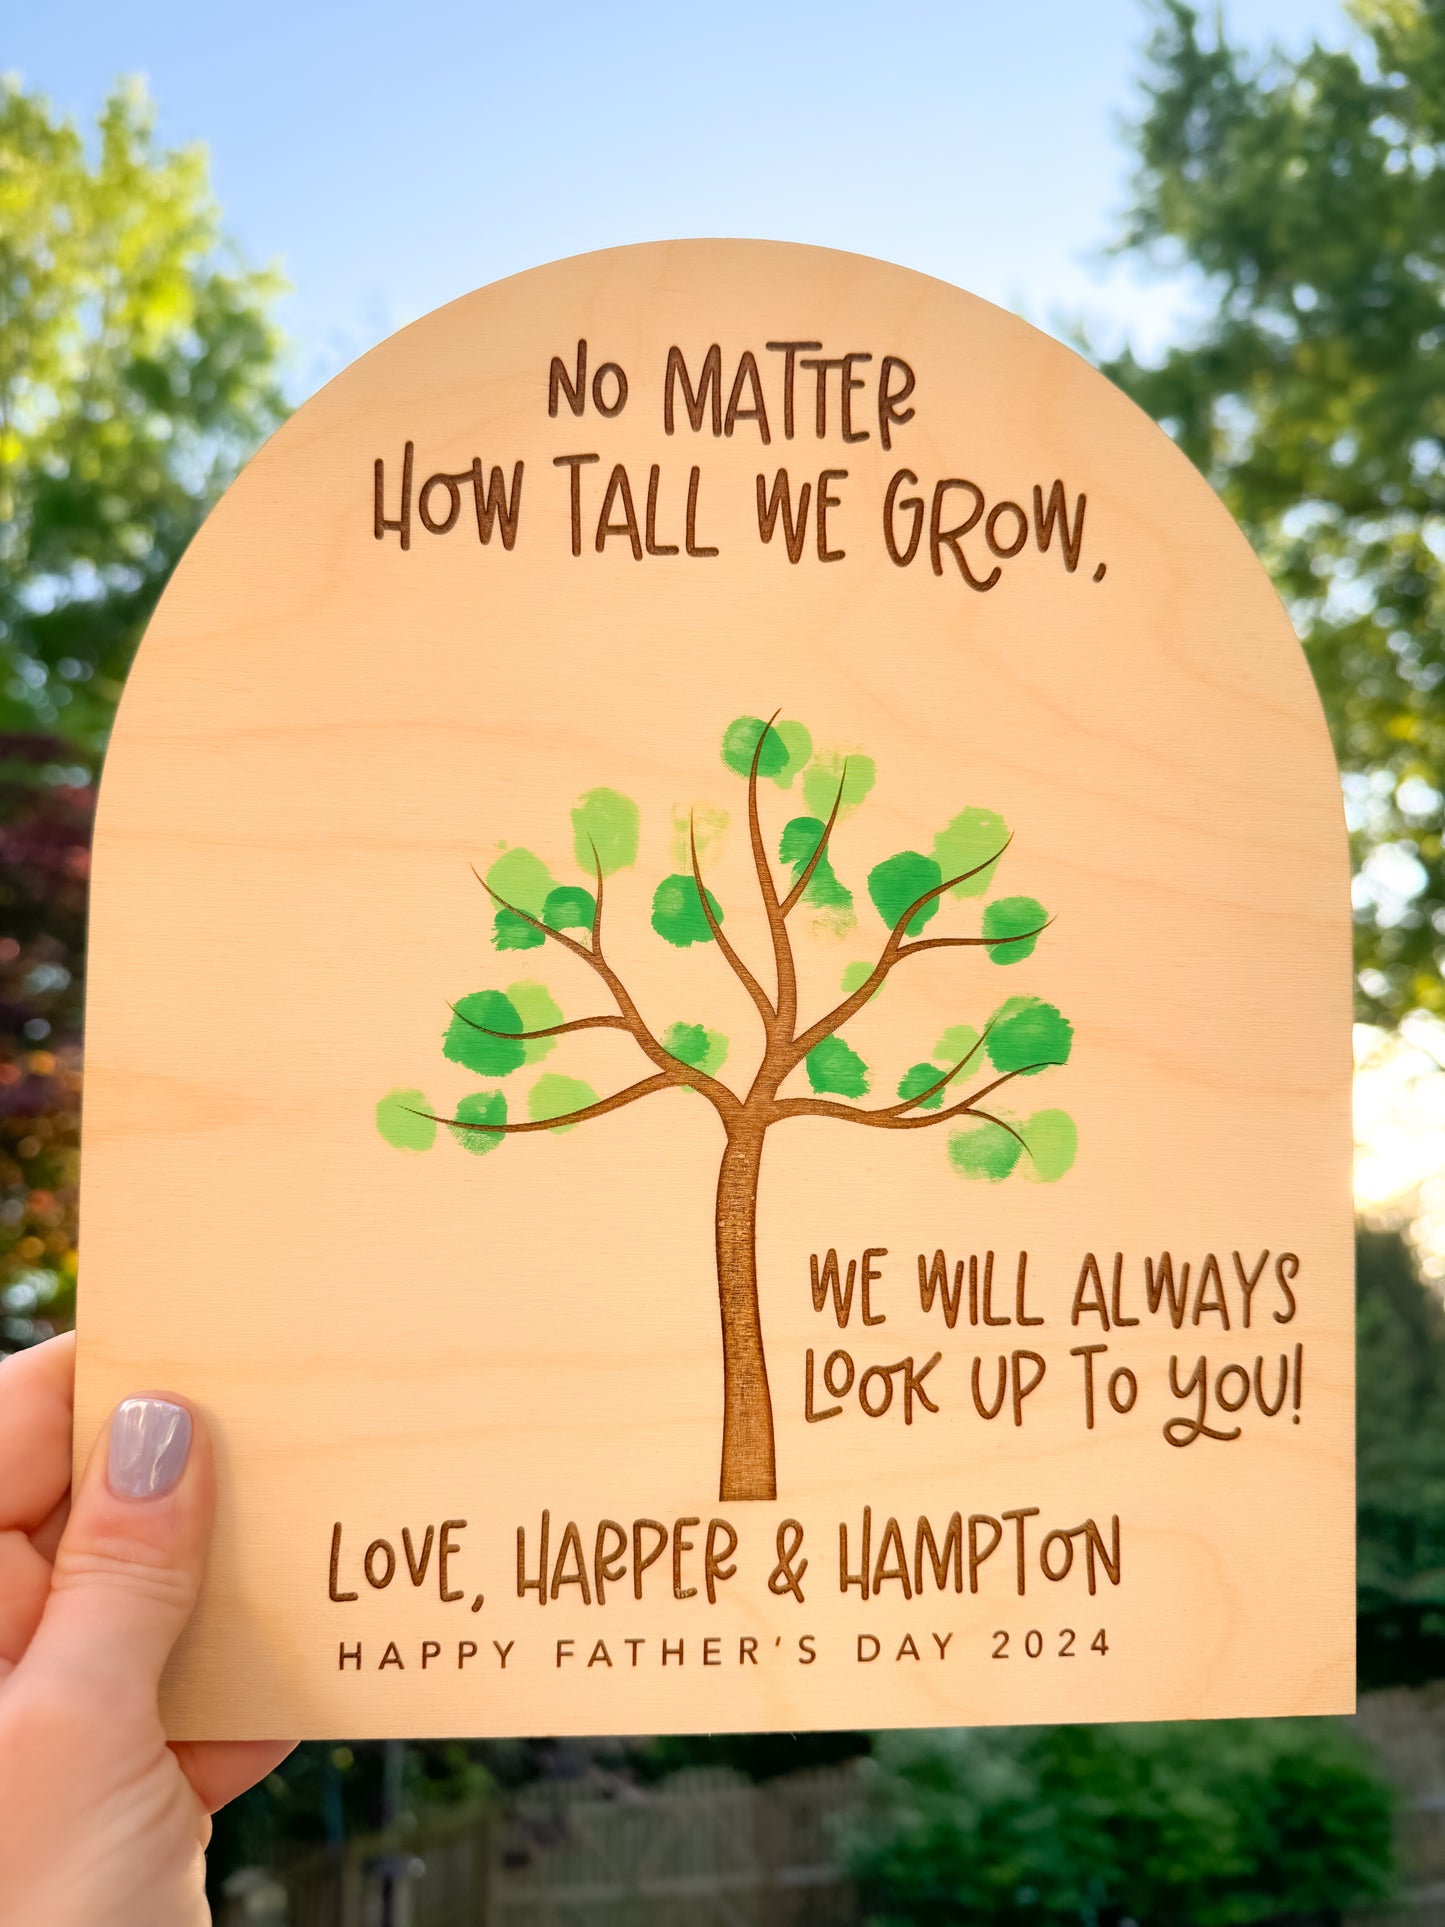 NO MATTER
HOW TALL WE GROW,
WE WILL ALWAYS
LOOK UP TO YOU!
LOVE, HARPER & HAMPTON
HAPPY FATHER'S DAY 2024